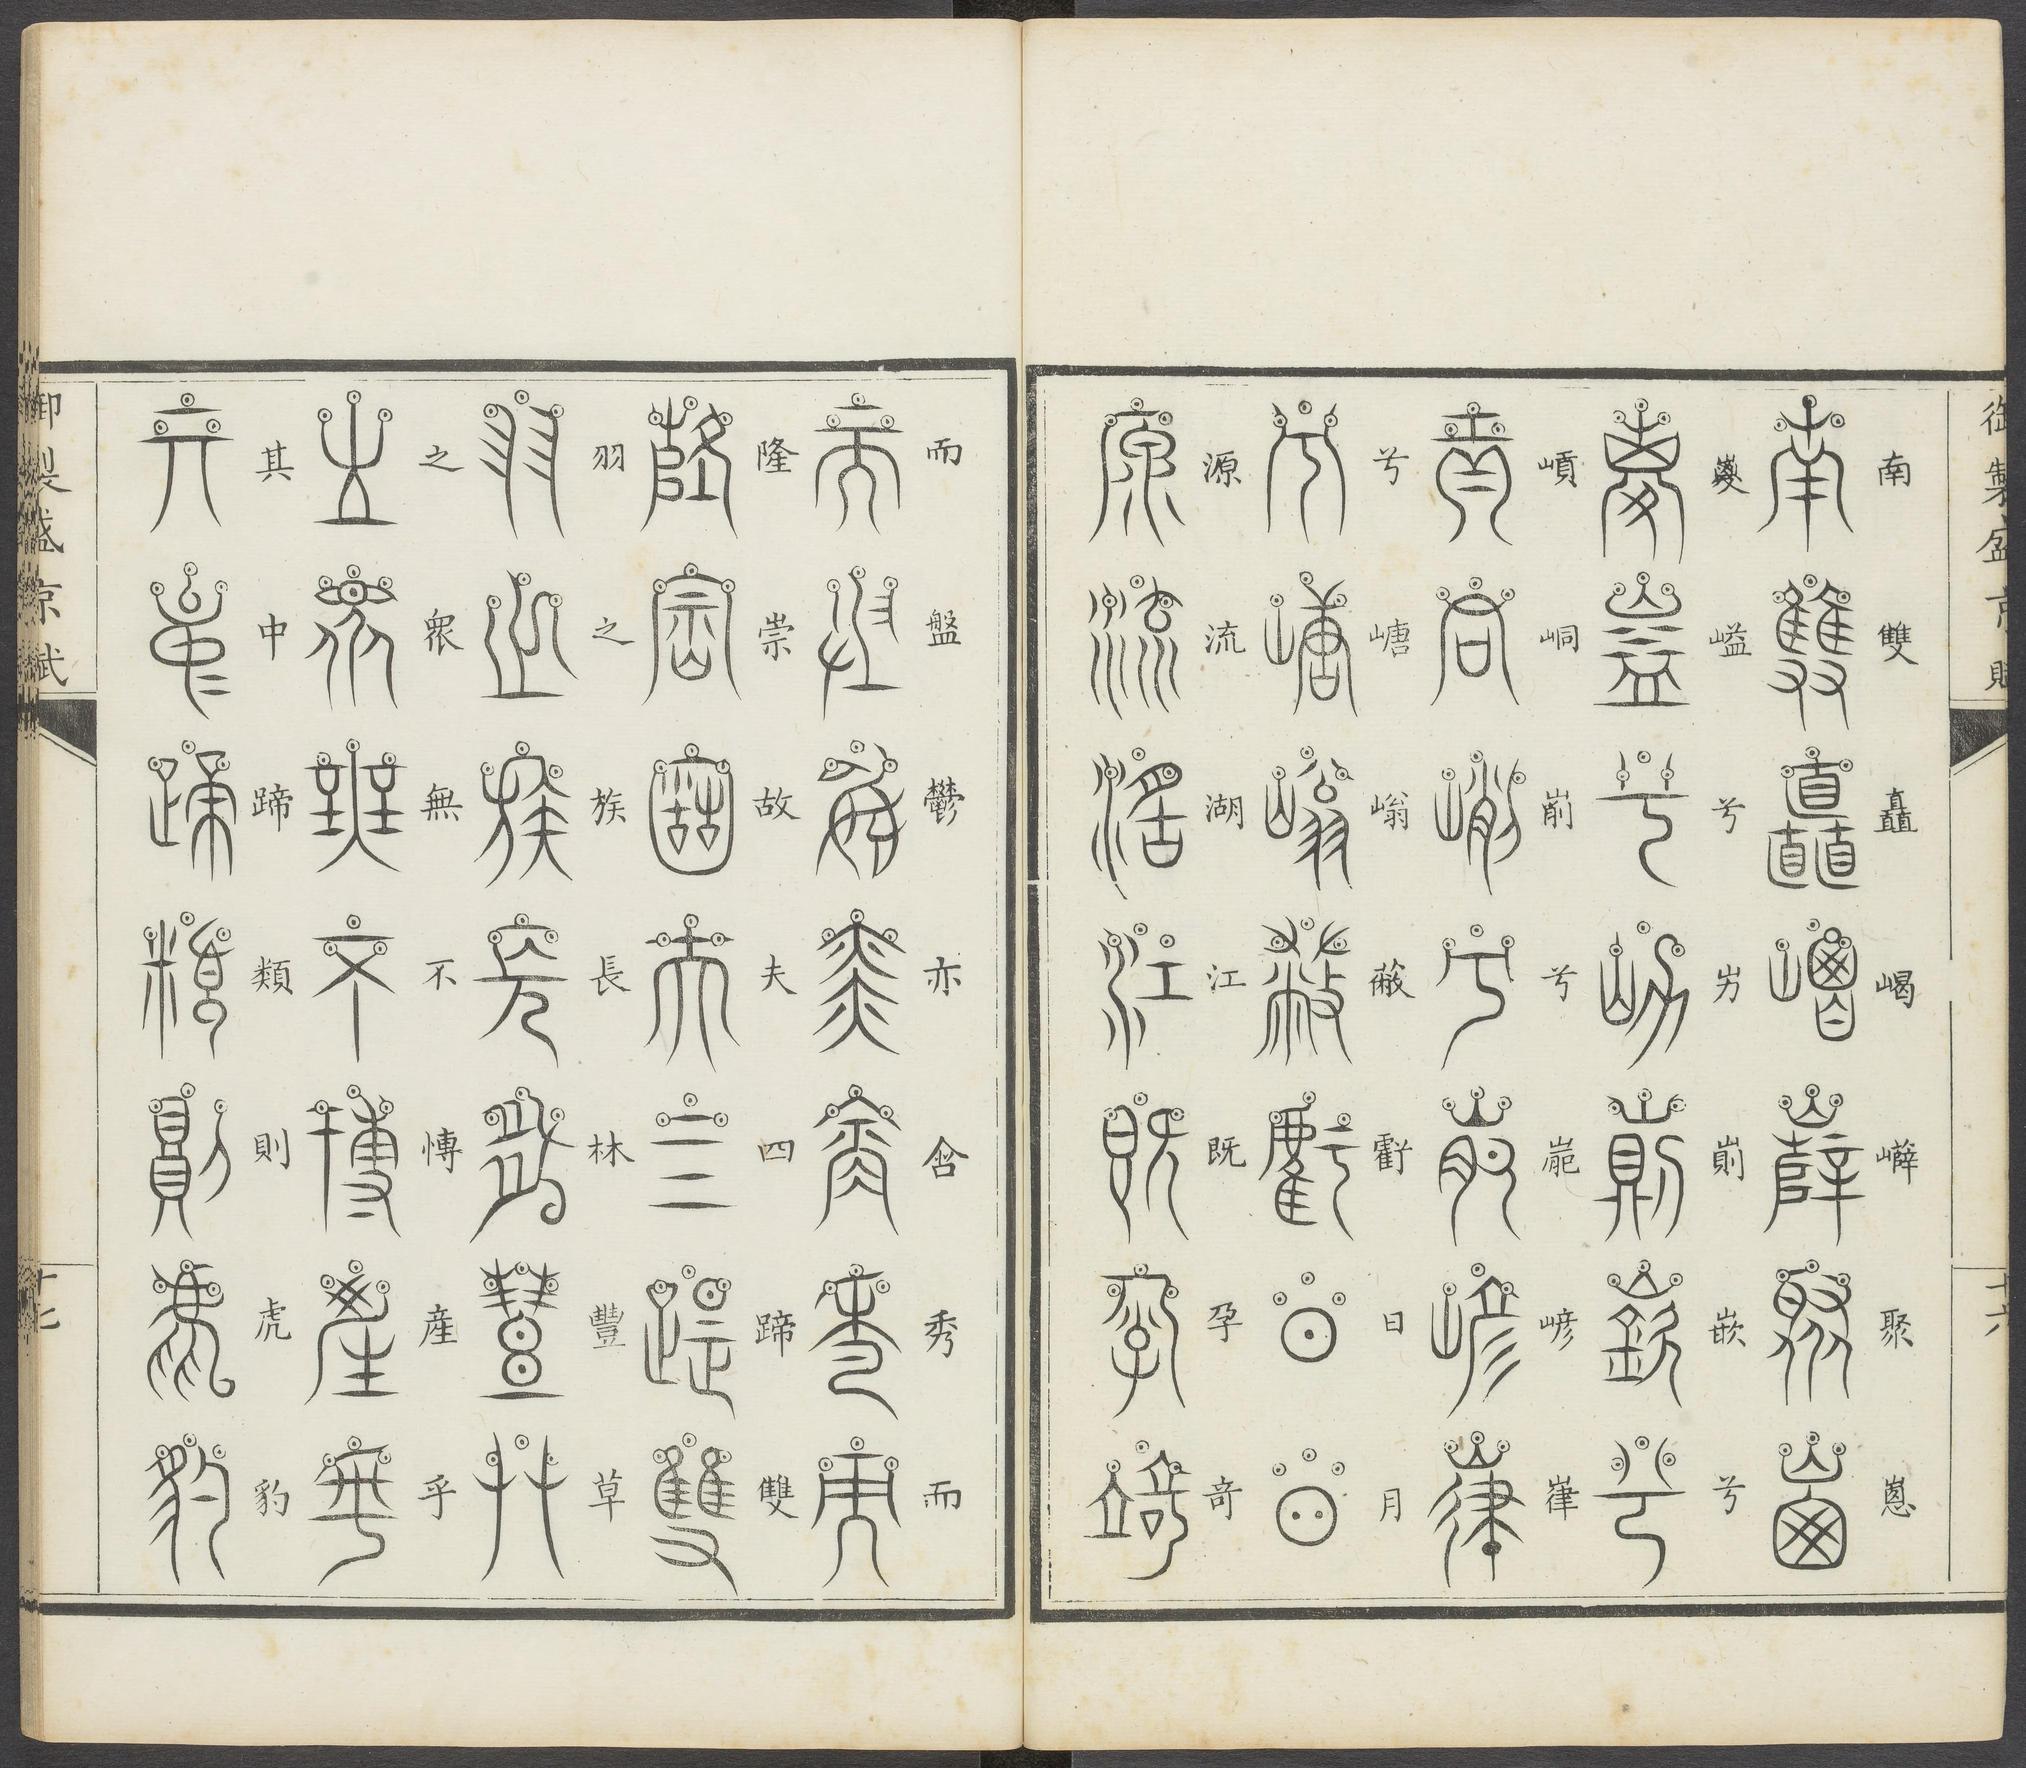 御製盛京賦
十六
南雙矗嵑㠔聚嵹
嵏嵫兮屴崱嵌兮
嵿峒㟷兮㟪嵃嵂
兮嵣嵡蔽虧日月
源流湖江既孕奇
而盤鬱亦含秀而
隆崇故夫四蹄雙
羽之族長林豐草
之衆無不慱産乎
其中蹄類則虎豹
御製盛京賦
十七